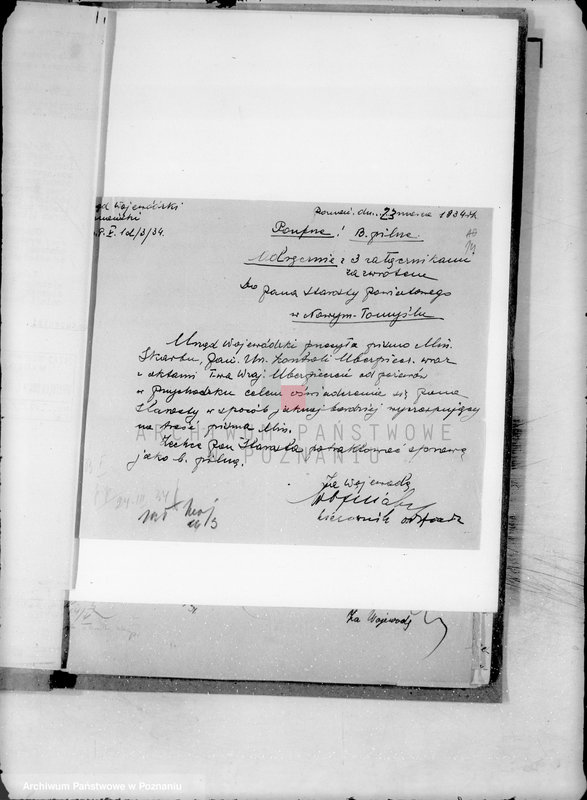 Poznań, dn. 23 marca 1934 r.
Urząd Wojewódzki
P. II. 1d/3/34.
Poufne! B. pilne.
Odręcznie z 3 załącznikami
za zwrotem
Do Pana Starosty Powiatowego
w Nowym-Tomyślu
Urząd Wojewódzki przesyła pismo Min.
Skarbu, Pań. Urz. Kontroli Ubezpiecz. wraz
z aktami Tow. Wzaj. Ubezpieczeń od pożarów
w Przychodzku celem oświadczenia się Pana
Starosty w sposób jaknajbardziej wyczerpujący
na treść pisma Min.
Zechce Pan Starosta potraktować sprawę
jako b. pilną.
Za Wojewodę
kierownik oddziału
24.III.34
Za Wojewodę
ARCHIWUM PAŃSTWOWE
W POZNANIU
Archiwum Państwowe w Poznaniu